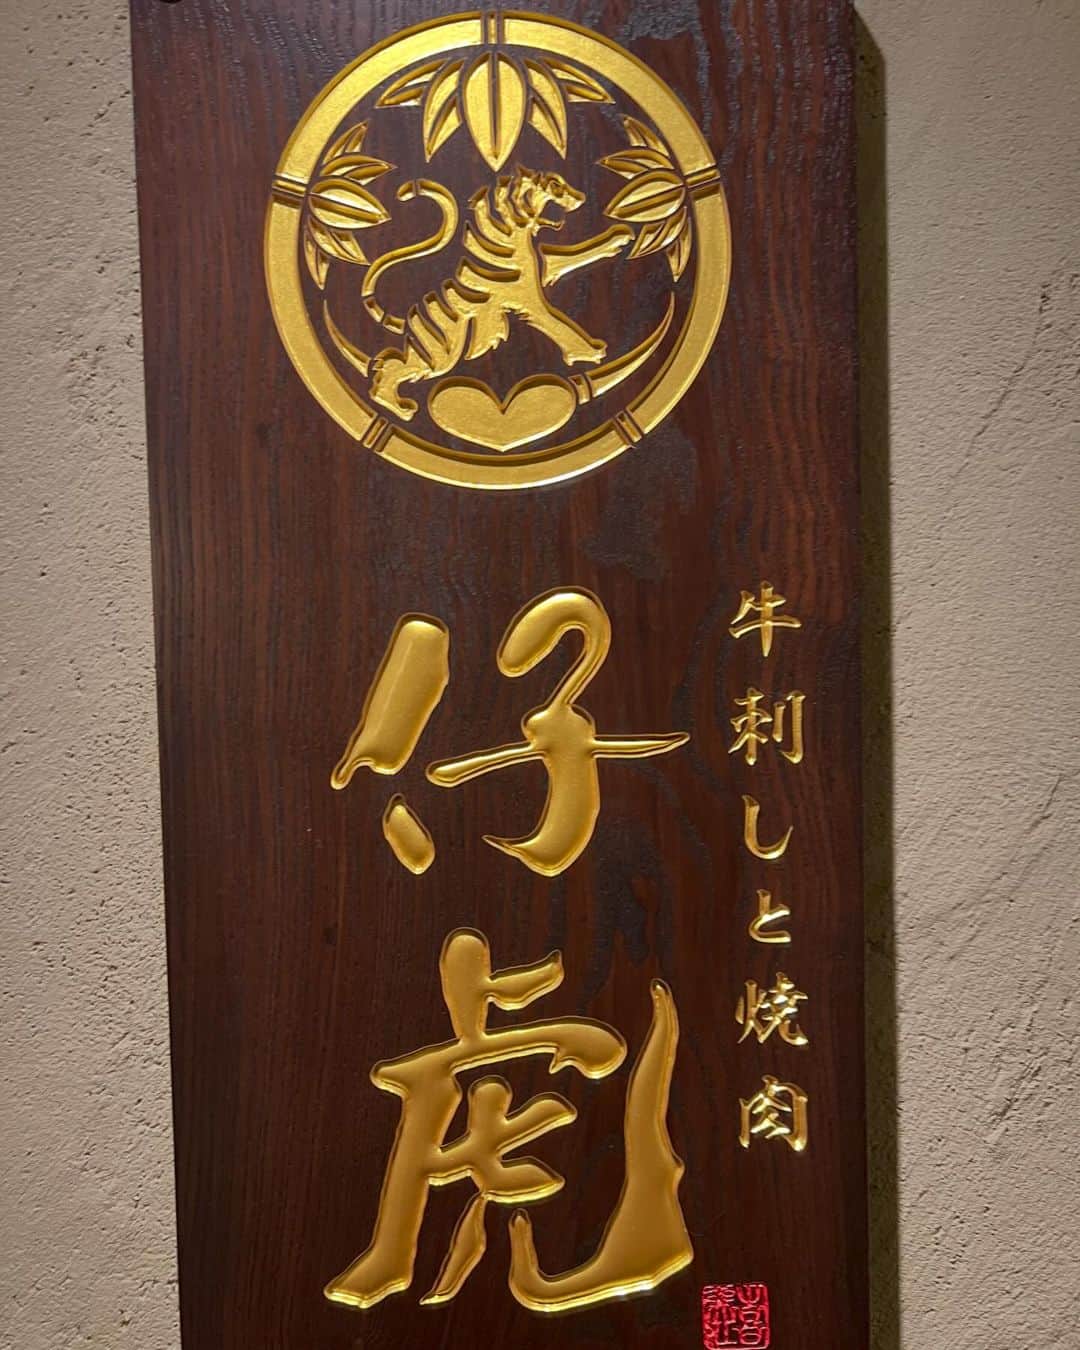 牛刺しと焼肉
仔虎